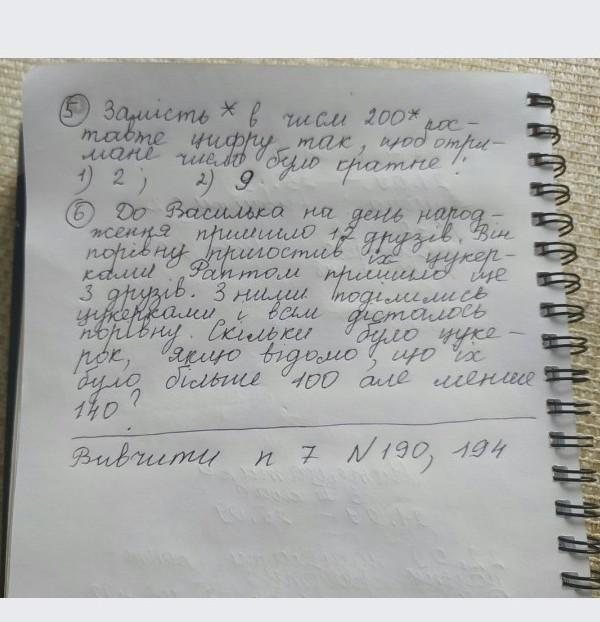 5 Замість * в числі 200* пос-
тавте цифру так, щоб отри-
мане число було кратне:
1) 2; 2) 9.
6 До Василька на день народ-
ження прийшло 12 друзів. Він
порівну пригостив їх цукер-
ками. Раптом прийшло ще
3 друзів. З ними поділились
цукерками і всім дісталось
порівну. Скільки було цуке-
рок, якщо відомо, що їх
було більше 100 але менше
140?
Вивчити п 7 N 190, 194